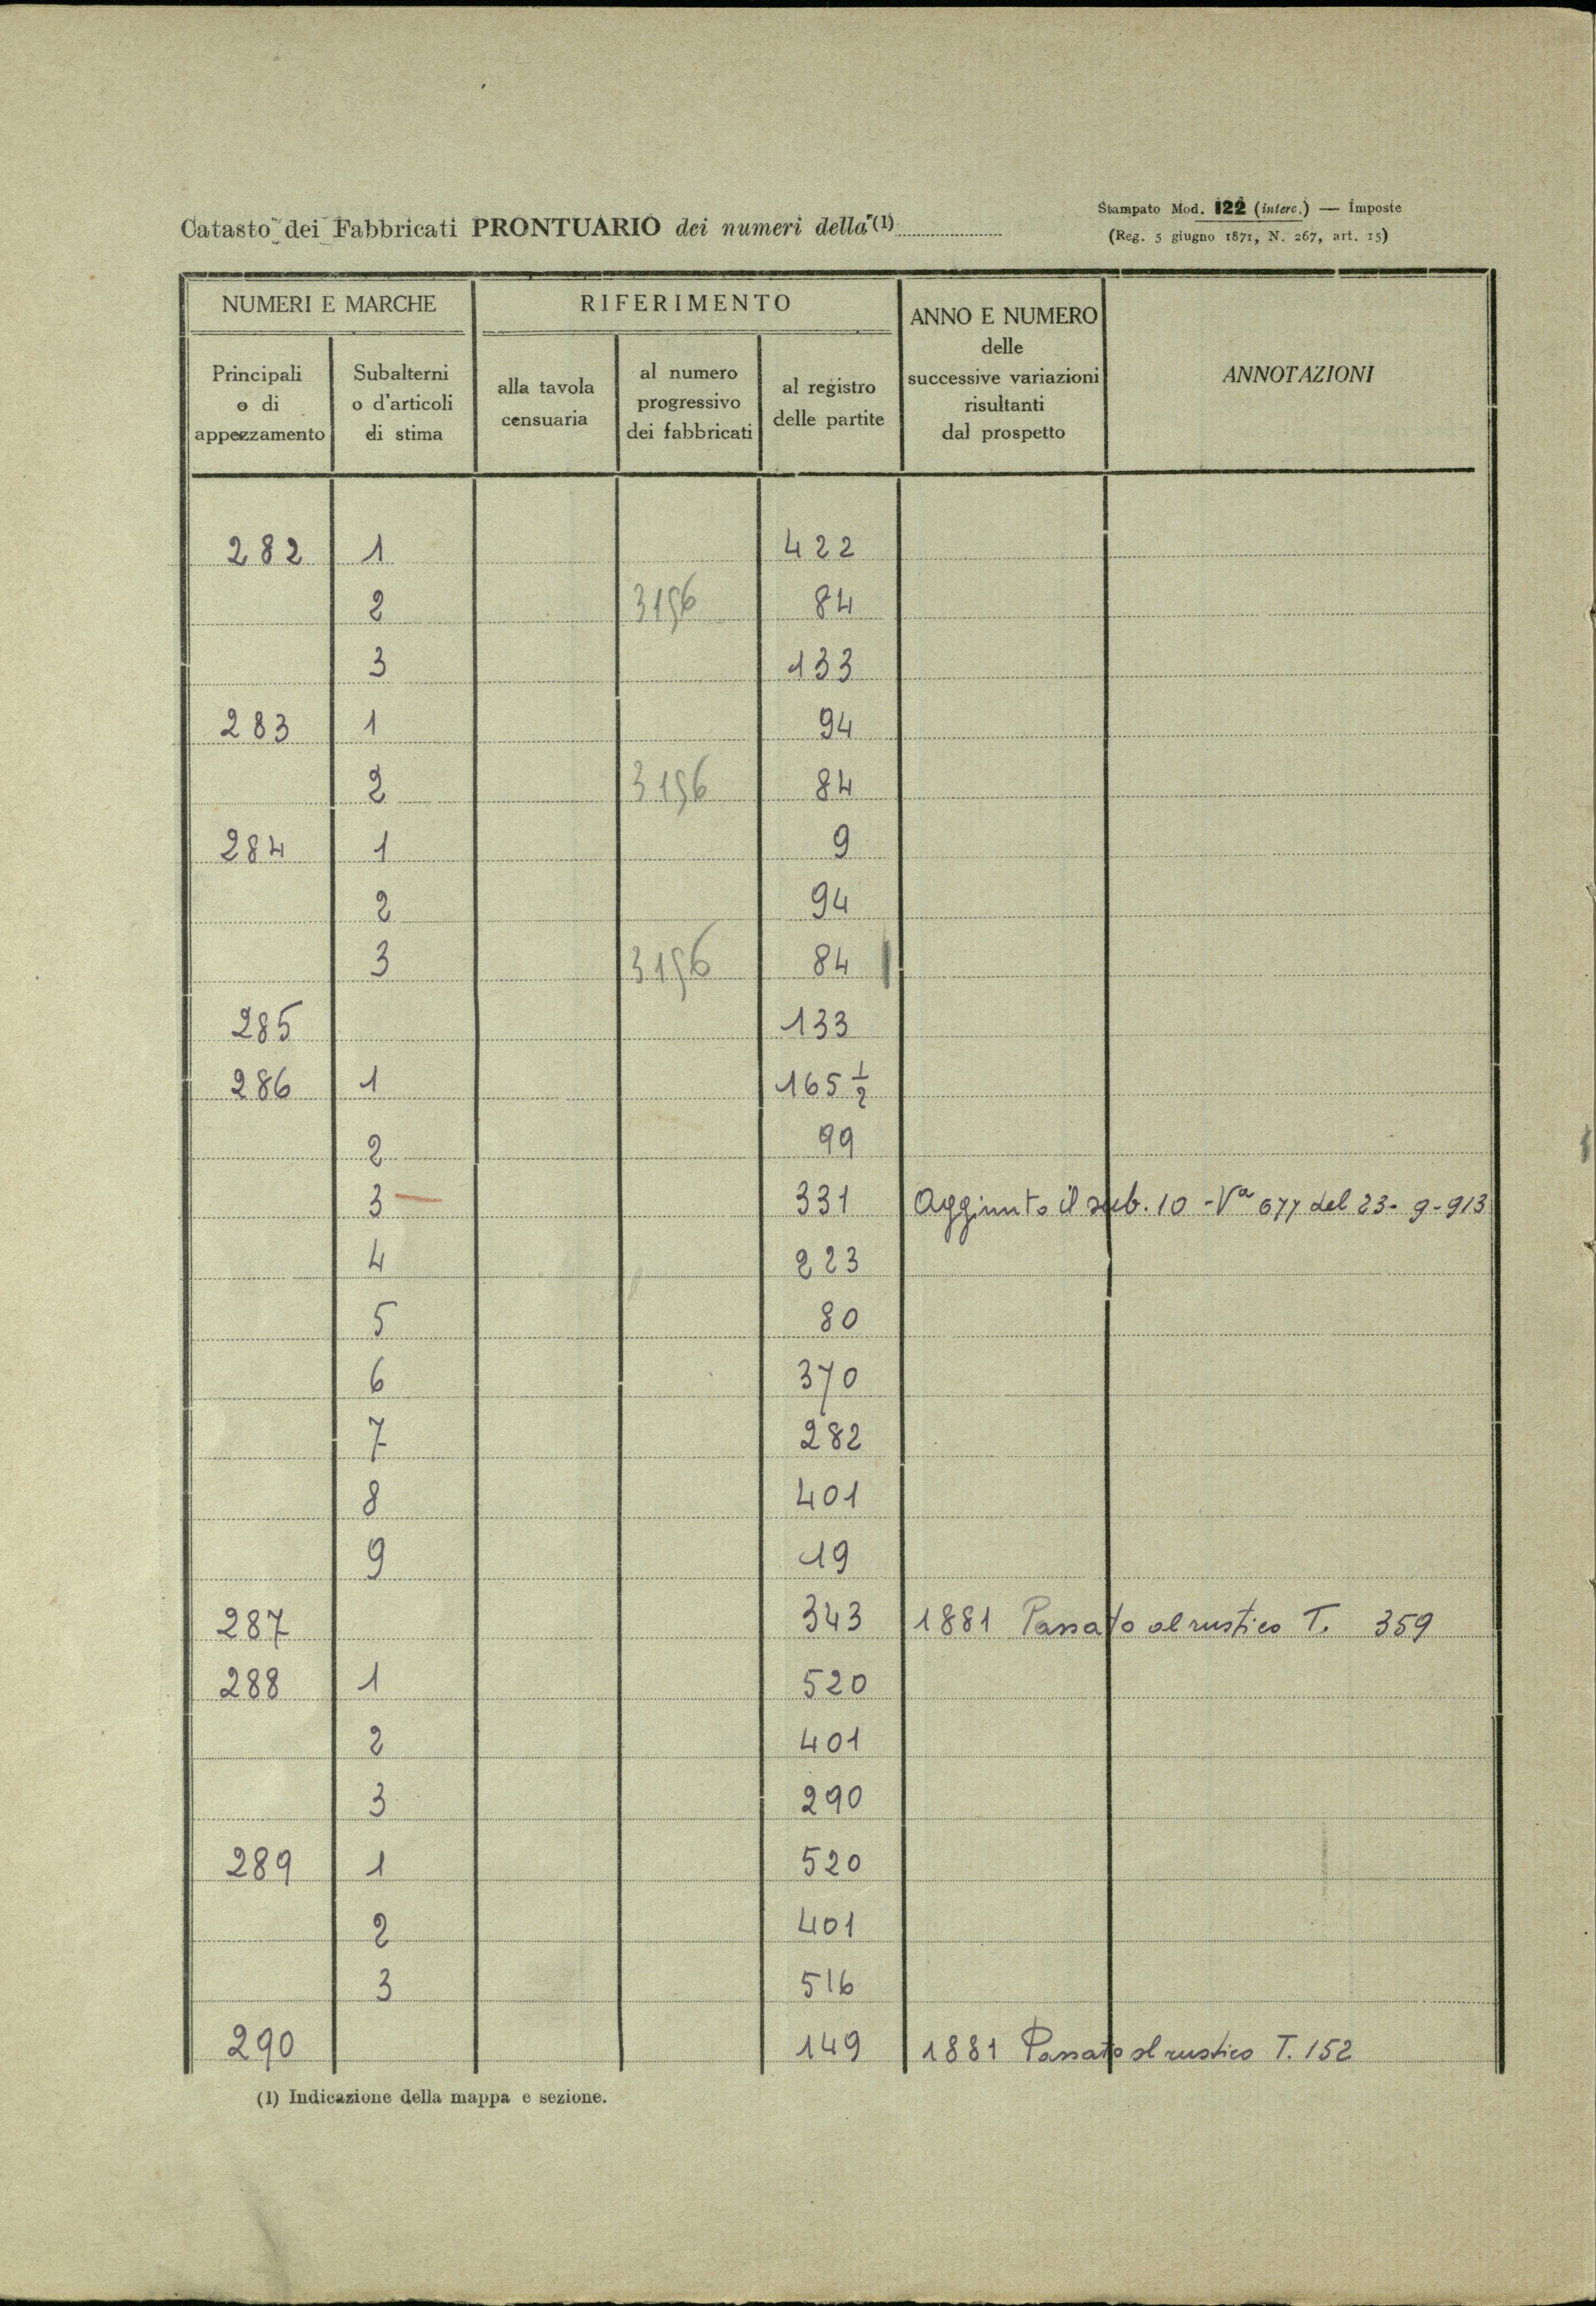 Catasto dei Fabbricati PRONTUARIO dei numeri della (1)
Stampato Mod. 122 (interc.) — Imposte
(Reg. 5 giugno 1871, N. 267, art. 15)
NUMERI E MARCHE
RIFERIMENTO
ANNO E NUMERO
delle
successive variazioni
risultanti
dal prospetto
ANNOTAZIONI
Principali
o di
appezzamento
Subalterni
o d'articoli
di stima
alla tavola
censuaria
al numero
progressivo
dei fabbricati
al registro
delle partite
282 1 422
2 3196 84
3 133
283 1 94
2 3196 84
284 1 9
2 94
3 3196 84
285 133
286 1 165 1/2
2 99
3 — 331 Aggiunto il sub. 10 - Va 677 del 23-9-913
4 223
5 80
6 370
7 282
8 401
9 19
287 343 1881 Passato al rustico T. 359
288 1 520
2 401
3 290
289 1 520
2 401
3 516
290 149 1881 Passato al rustico T. 152
(1) Indicazione della mappa e sezione.